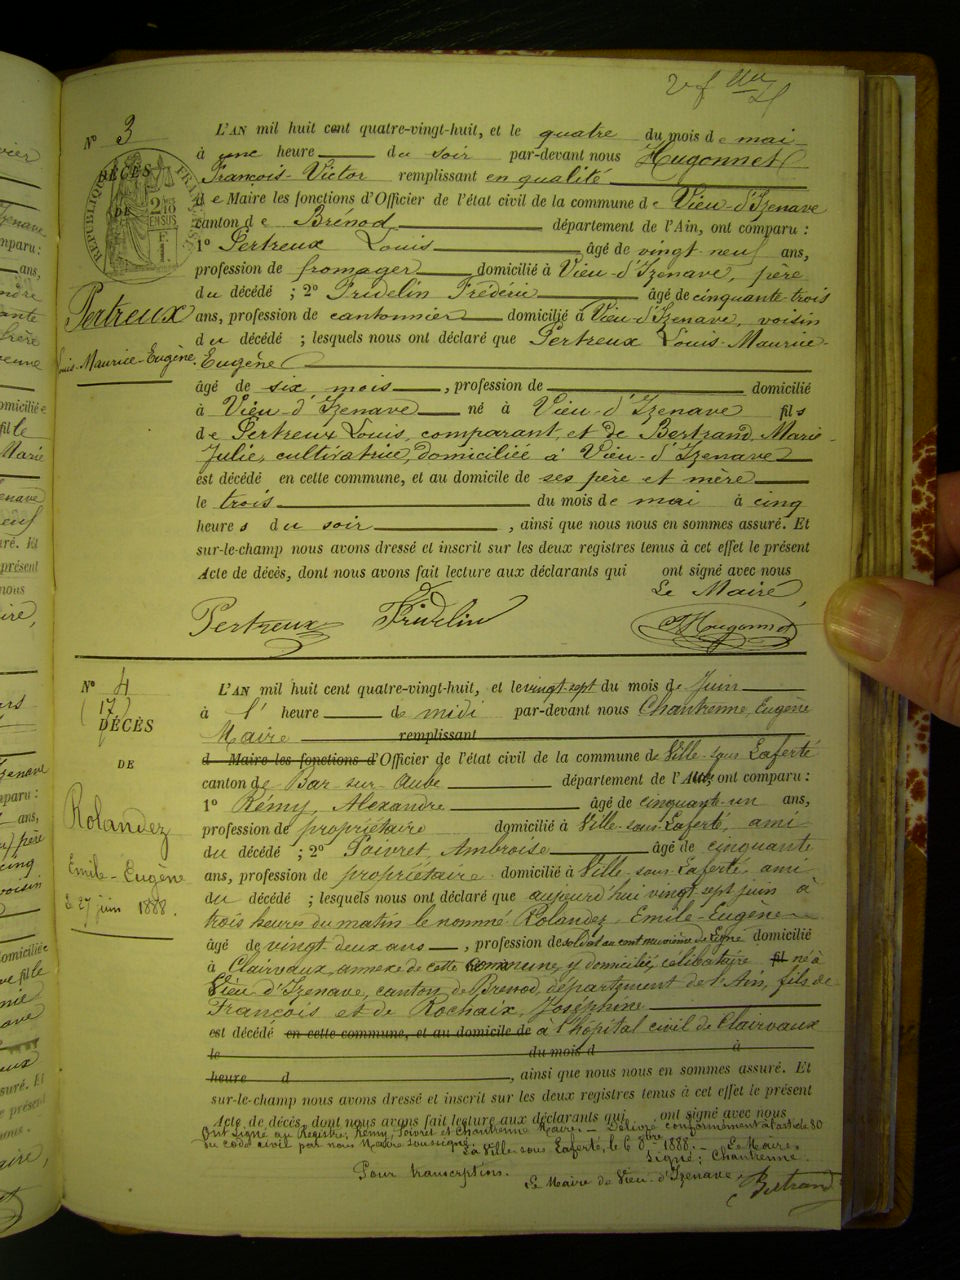 N° 3
DÉCÈS
DE
RÉPUBLIQUE FRANÇAISE
2/10 EN SUS
F. 1.
Pertreux
Louis-Maurice-Eugène.
L'AN mil huit cent quatre-vingt-huit, et le quatre du mois de mai
à une heure du soir par-devant nous Hugonnet
François-Victor remplissant en qualité
de Maire les fonctions d'Officier de l'état civil de la commune de Vieu-d'Izenave
canton de Brénod département de l'Ain, ont comparu :
1° Pertreux Louis âgé de vingt-neuf ans,
profession de fromager domicilié à Vieu-d'Izenave, père
du décédé ; 2° Fridelin Frédéric âgé de cinquante-trois
ans, profession de cantonnier domicilié à Vieu-d'Izenave, voisin
du décédé ; lesquels nous ont déclaré que Pertreux Louis-Maurice-
Eugène
âgé de six mois, profession de domicilié
à Vieu-d'Izenave né à Vieu-d'Izenave fils
de Pertreux Louis, comparant, et de Bertrand Marie-
Julie, cultivatrice, domiciliée à Vieu-d'Izenave
est décédé en cette commune, et au domicile de ses père et mère
le trois du mois de mai à cinq
heures du soir, ainsi que nous nous en sommes assuré. Et
sur-le-champ nous avons dressé et inscrit sur les deux registres tenus à cet effet le présent
Acte de décès, dont nous avons fait lecture aux déclarants qui ont signé avec nous
Le Maire,
Pertreux Fridelin Hugonnet
N° 4
(17)
DÉCÈS
DE
Rolandez
Emile-Eugène
27 juin 1888.
L'AN mil huit cent quatre-vingt-huit, et le vingt-sept du mois de Juin
à l' heure de midi par-devant nous Chantrenne, Eugène
Maire remplissant
d Maire les fonctions d'Officier de l'état civil de la commune de Ville-sous-Laferté
canton de Bar-sur-Aube département de l'Aube, ont comparu :
1° Rémy, Alexandre âgé de cinquante-un ans,
profession de propriétaire domicilié à Ville-sous-Laferté, ami
du décédé ; 2° Poivret, Ambroise âgé de cinquante
ans, profession de propriétaire domicilié à Ville-sous-Laferté, ami
du décédé ; lesquels nous ont déclaré que aujourd'hui vingt-sept juin à
trois heures du matin le nommé Rolandez, Emile-Eugène
âgé de vingt deux ans, profession de soldat au cent neuvième de ligne domicilié
à Clairvaux, annexe de cette commune, y domicilié, célibataire fil né à
Vieu-d'Izenave, canton de Brénod, département de l'Ain, fils de
François et de Rochaix, Joséphine
est décédé en cette commune, et au domicile de à l'hôpital civil de Clairvaux
le du mois d à
heure d , ainsi que nous nous en sommes assuré. Et
sur-le-champ nous avons dressé et inscrit sur les deux registres tenus à cet effet le présent
Acte de décès, dont nous avons fait lecture aux déclarants qui ont signé avec nous
Ont signé au Registre: Rémy, Poivret et Chantrenne Maire. — Délivré conformément à l'article 80
du code civil par nous Maire soussigné.
à Ville-sous-Laferté, le 6 8bre 1888. — Le Maire,
Signé: Chantrenne.
Pour transcription.
Le Maire de Vieu-d'Izenave, Bertrand